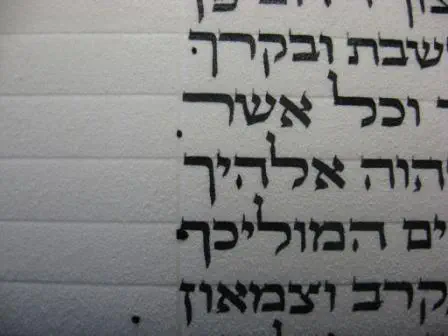 שבת ובקרך
וכל אשר
הוה אלהיך
ים המוליכך
קרב וצמאון